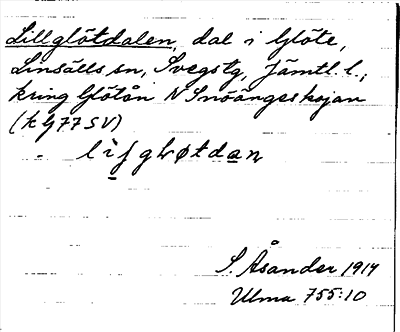 Lillglötdalen, dal i Glöte,
Linsälls sn, Svegs tg, Jämtl. l.,
kring Glötån N Snöängeskojan
(kG 77 SV)
S. Åsander 1914
Ulma 755:10